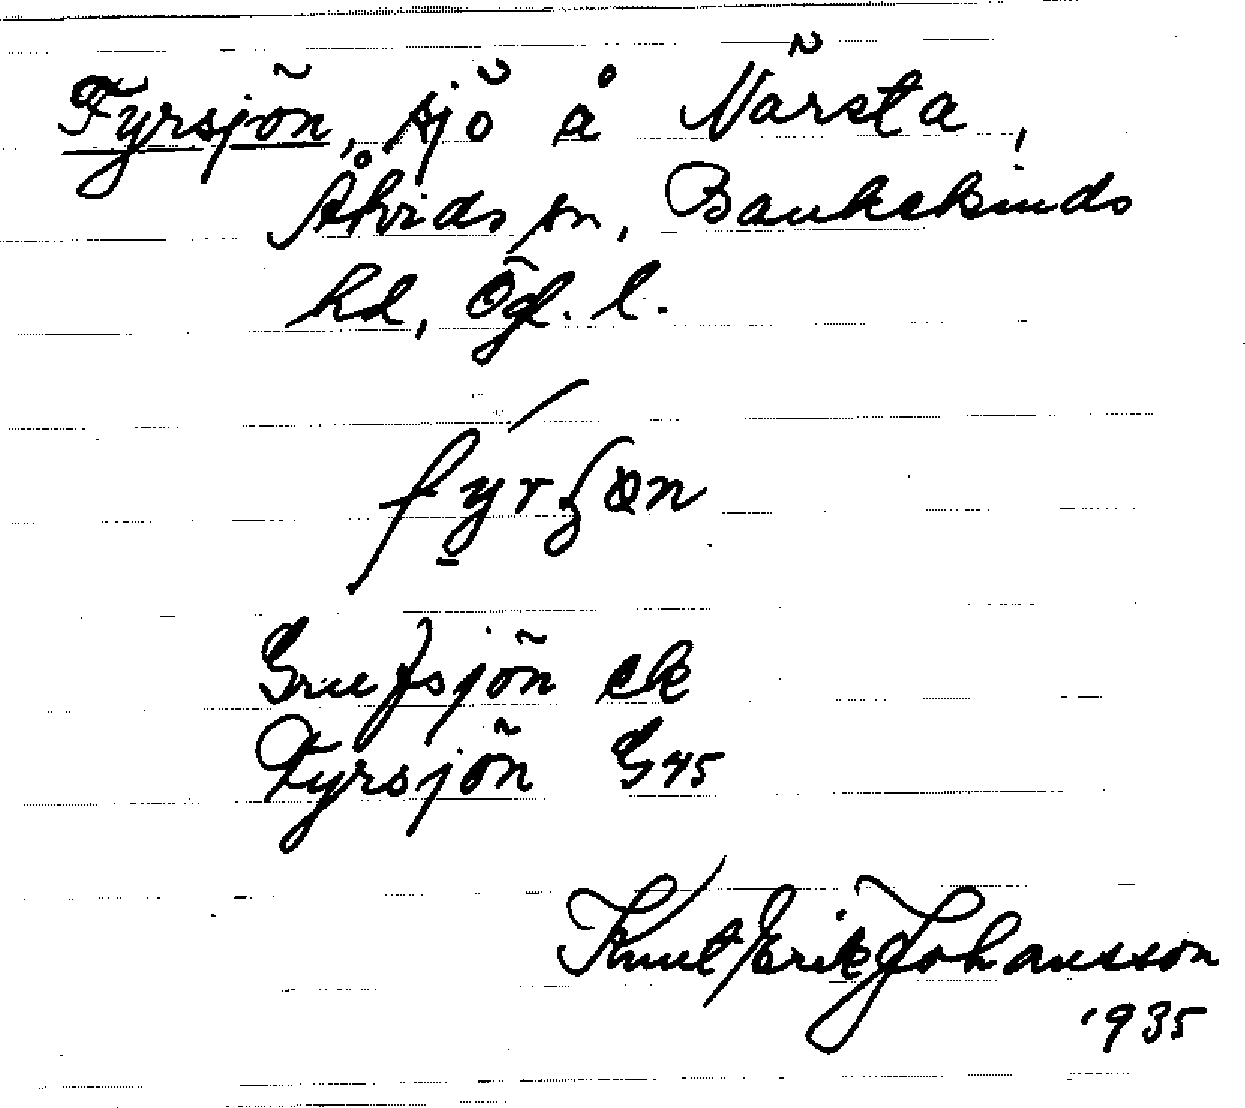 Fyrsjön, sjö å Närsta,
Åtvids sn, Bankekinds
hd, Ögl. l.
Grufsjön ek
Fyrsjön G45
Knut Erik Johansson
1935